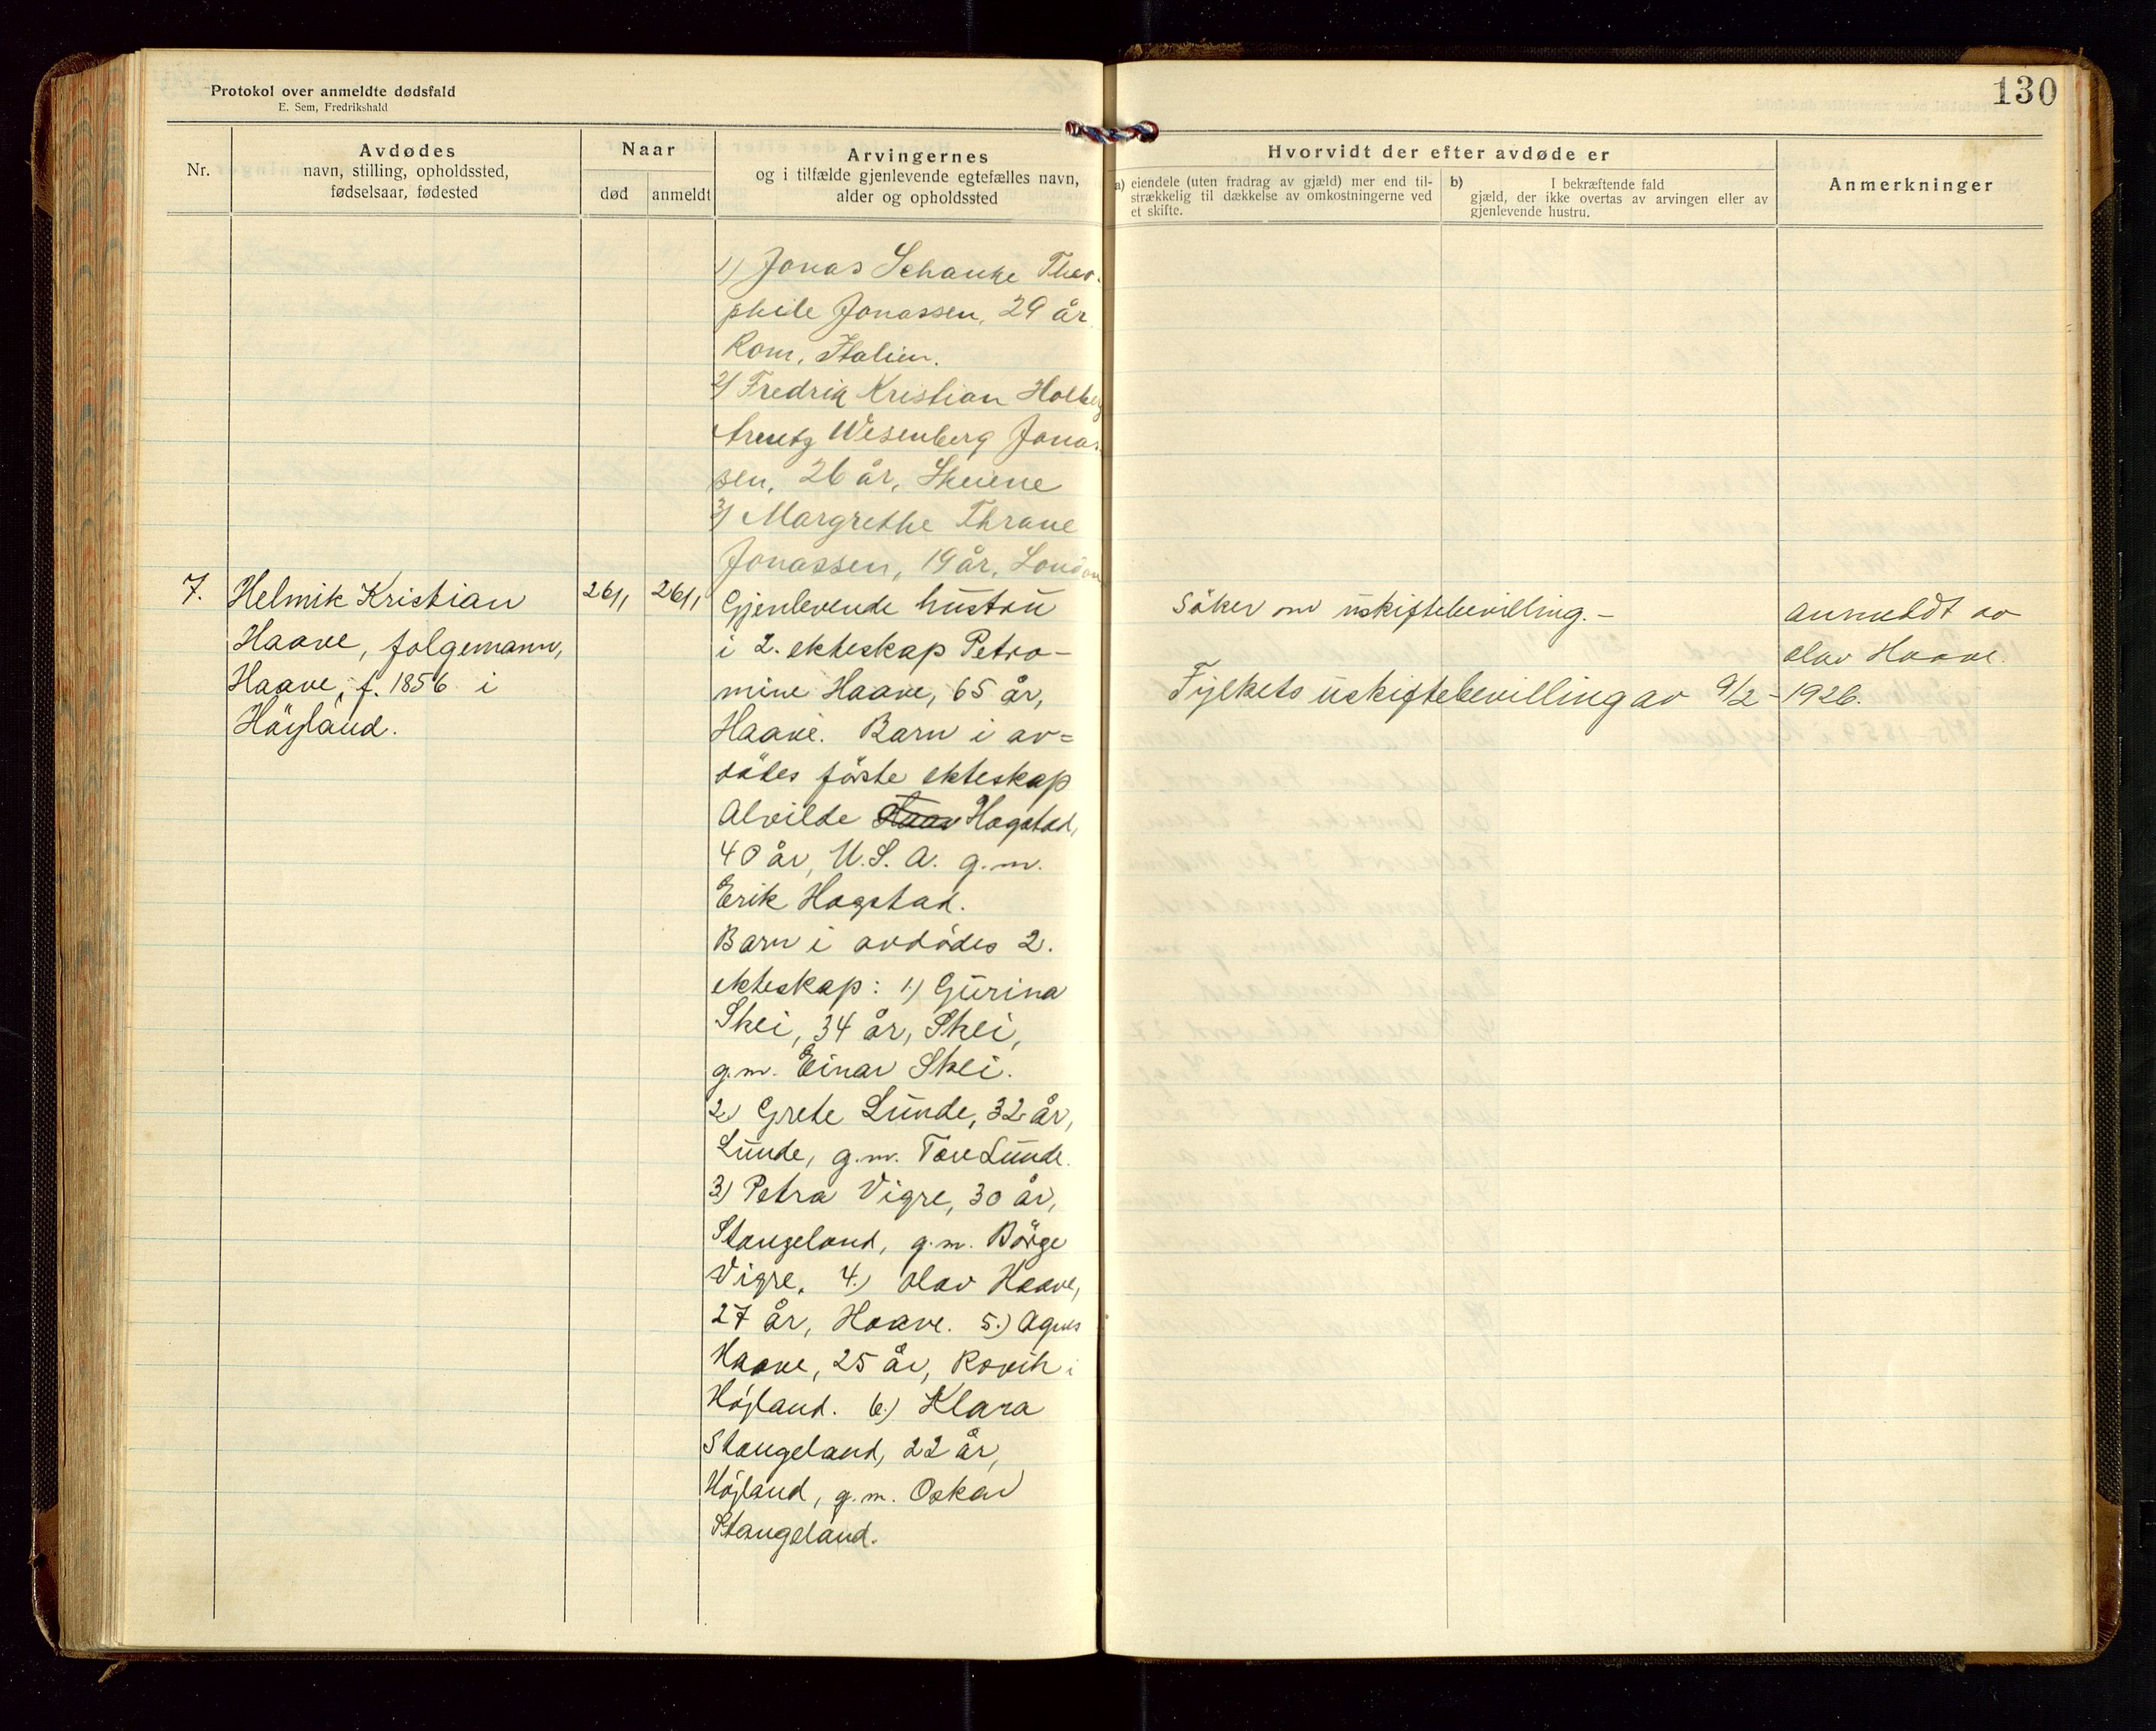 Protokol over anmeldte dødsfald
E. Sem, Fredrikshald
130
Nr.
Avdødes
navn, stilling, opholdssted,
fødselsaar, fødested
Naar
død
anmeldt
Arvingernes
og i tilfælde gjenlevende egtefælles navn,
alder og opholdssted
Hvorvidt der efter avdøde er
a) eiendele (uten fradrag av gjæld) mer end til-
strækkelig til dækkelse av omkostningerne ved
et skifte.
b) I bekræftende fald
gjæld, der ikke overtas av arvingen eller av
gjenlevende hustru.
Anmerkninger
1) Jonas Schanke Theo-
phile Jonassen, 29 år
Rom, Italien.
2) Fredrik Kristian Holberg
Arentz Wesenberg Jonas-
sen, 26 år, Skiene
3) Margrethe Thrane
Jonassen, 19 år, London
7.
Helmik Kristian
Haave, folgemann,
Haave, f. 1856 i
Höyland.
26/1
26/1
Gjenlevende hustru
i 2. ekteskap Petro-
mine Haave, 65 år,
Haave. Barn i av=
dödes förste ekteskap
Alvilde Haav Hogstad,
40 år, U.S.A. g.m.
Erik Hogstad.
Barn i avdödes 2.
ekteskap: 1) Gurina
Skei, 34 år, Skei,
g.m. Einar Skei.
2) Grete Lunde, 32 år,
Lunde, g.m. Tore Lunde.
3) Petra Vigre, 30 år,
Stangeland, g.m. Börge
Vigre. 4.) Olav Haave,
27 år, Haave. 5.) Agnes
Haave, 25 år, Rovik i
Höyland. 6.) Klara
Stangeland, 22 år,
Höyland, g.m. Oskar
Stangeland.
Söker om uskiftebevilling.-
Fylkets uskiftebevilling av 9/2-1926.
Anmeldt av
Olav Haave.